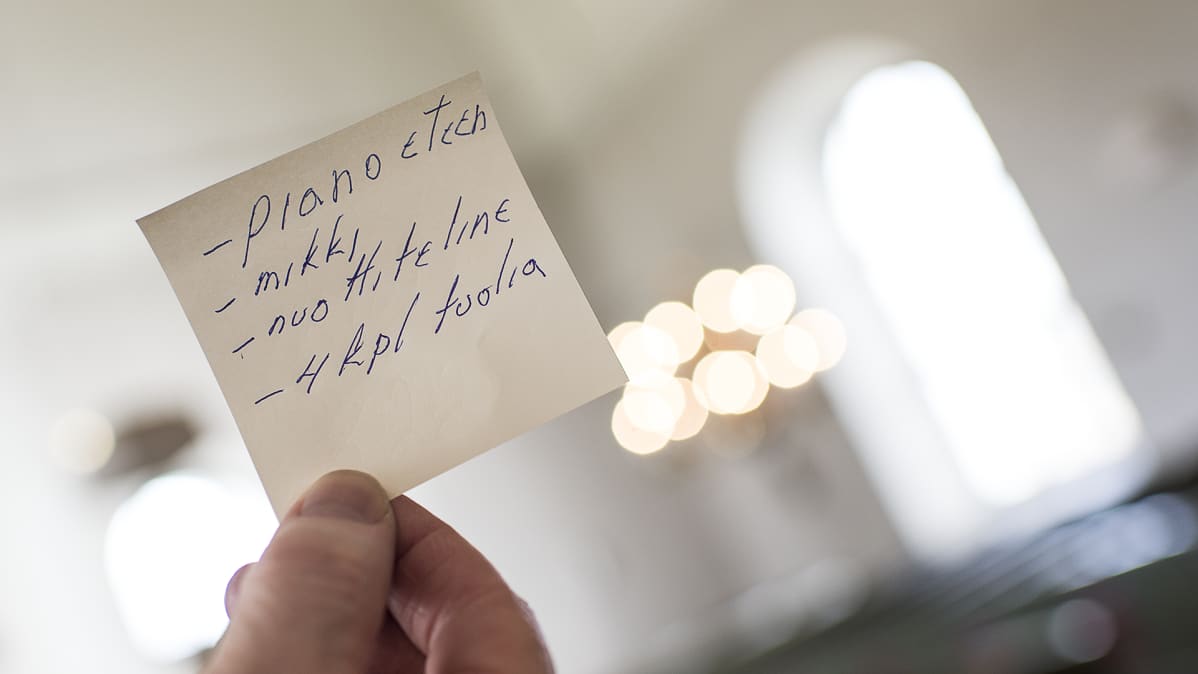 - piano eteen
- mikki
- nuottiteline
- 4 kpl tuolia